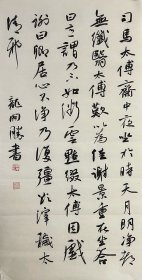 司馬太傅齋中夜坐於時天月明淨都
無纖翳太傅歎以為佳謝景重在坐答
曰意謂乃不如微雲點綴太傅因戲
謝曰卿居心不淨乃復彊欲滓穢太
清邪 龍開勝書